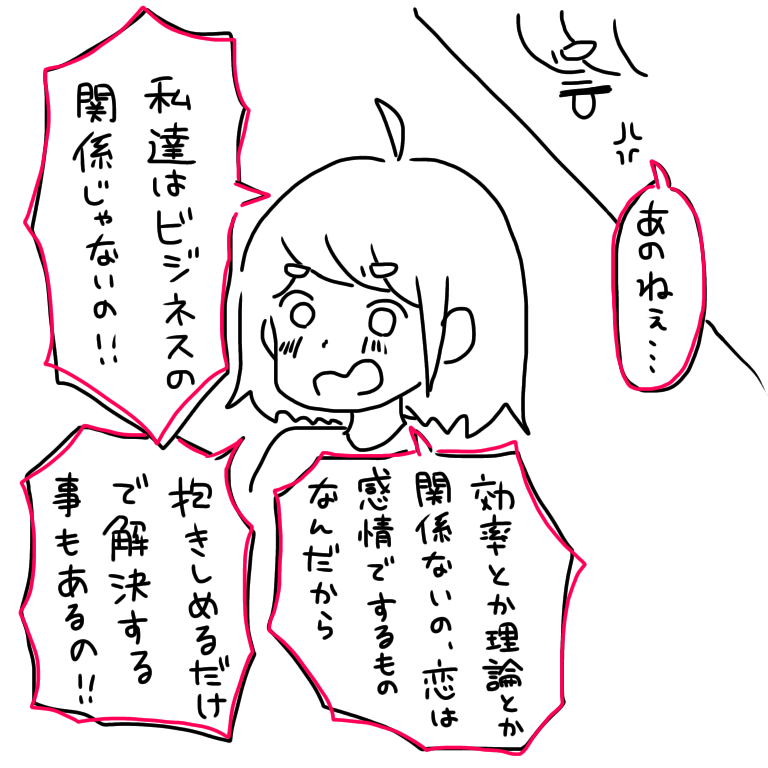 あのねぇ…
効率とか理論とか
関係ないの、恋は
感情でするもの
なんだから
私達はビジネスの
関係じゃないの!!
抱きしめるだけ
で解決する
事もあるの!!